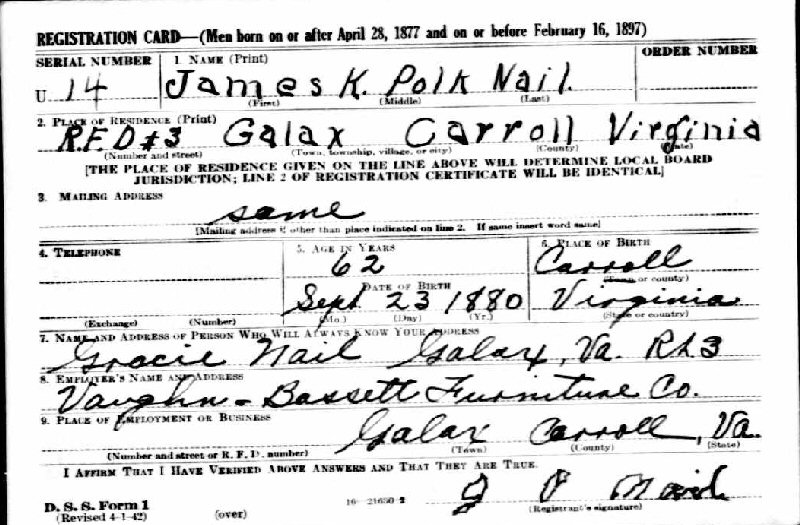 REGISTRATION CARD—(Men born on or after April 28, 1877 and on or before February 16, 1897)
SERIAL NUMBER 1. NAME (Print) ORDER NUMBER
U 14 James K. Polk Nail.
(First) (Middle) (Last)
2. PLACE OF RESIDENCE (Print)
R.F.D #3 Galax Carroll Virginia
(Number and street) (Town, township, village, or city) (County) (State)
[THE PLACE OF RESIDENCE GIVEN ON THE LINE ABOVE WILL DETERMINE LOCAL BOARD
JURISDICTION; LINE 2 OF REGISTRATION CERTIFICATE WILL BE IDENTICAL]
3. MAILING ADDRESS
same
[Mailing address if other than place indicated on line 2. If same insert word same]
4. TELEPHONE 5. AGE IN YEARS 6. PLACE OF BIRTH
62 Carroll
DATE OF BIRTH (Town or county)
Sept 23 1880 Virginia
(Exchange) (Number) (Mo.) (Day) (Yr.) (State or country)
7. NAME AND ADDRESS OF PERSON WHO WILL ALWAYS KNOW YOUR ADDRESS
Gracie Nail Galax, Va. Rt 3
8. EMPLOYER'S NAME AND ADDRESS
Vaughn - Bassett Furniture Co.
9. PLACE OF EMPLOYMENT OR BUSINESS
Galax Carroll, Va.
(Number and street or R. F. D. number) (Town) (County) (State)
I AFFIRM THAT I HAVE VERIFIED ABOVE ANSWERS AND THAT THEY ARE TRUE.
D. S. S. Form 1
(Revised 4-1-42) (over) 16—21630-2 (Registrant's signature)